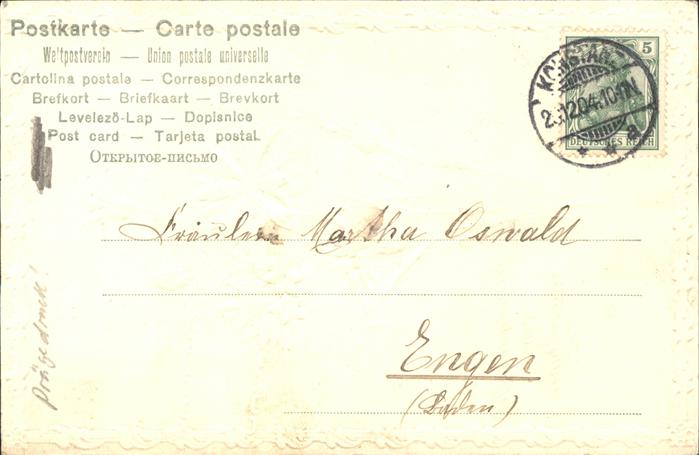 Postkarte — Carte postale
Weltpostverein — Union postale universelle
Cartolina postale — Correspondenzkarte
Brefkort — Briefkaart — Brevkort
Levelező-Lap — Dopisnice
Post card — Tarjeta postal.
Открытое-письмо
5
DEUTSCHES REICH
a
Fräulein Martha Oswald
Engen
(Baden)
Prägedruck!